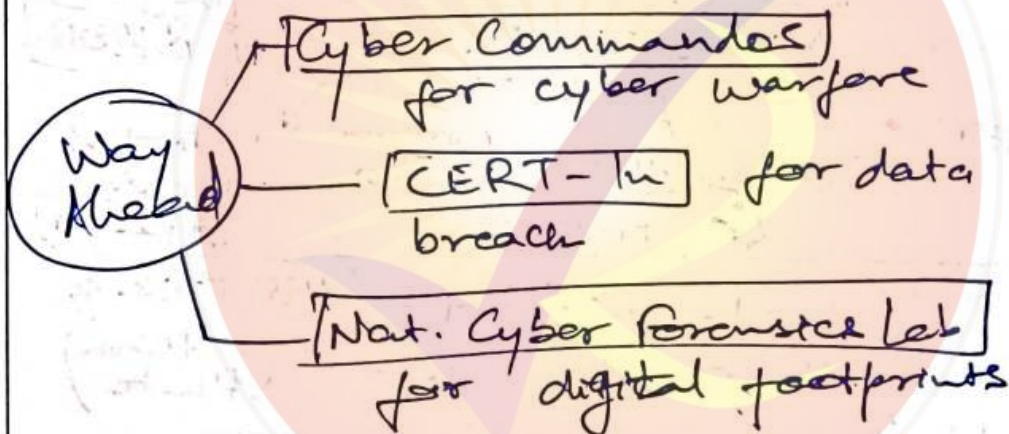 Cyber Commandos
for cyber warfare
Way
Ahead
CERT-In for data
breach
Nat. Cyber Forensics Lab
for digital footprints